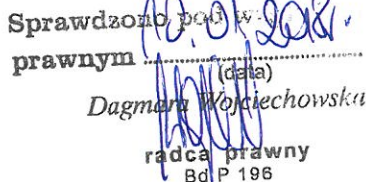 Sprawdzono pod w
prawnym 10.01.2018r.
(data)
Dagmara Wojciechowska
radca prawny
Bd P 196